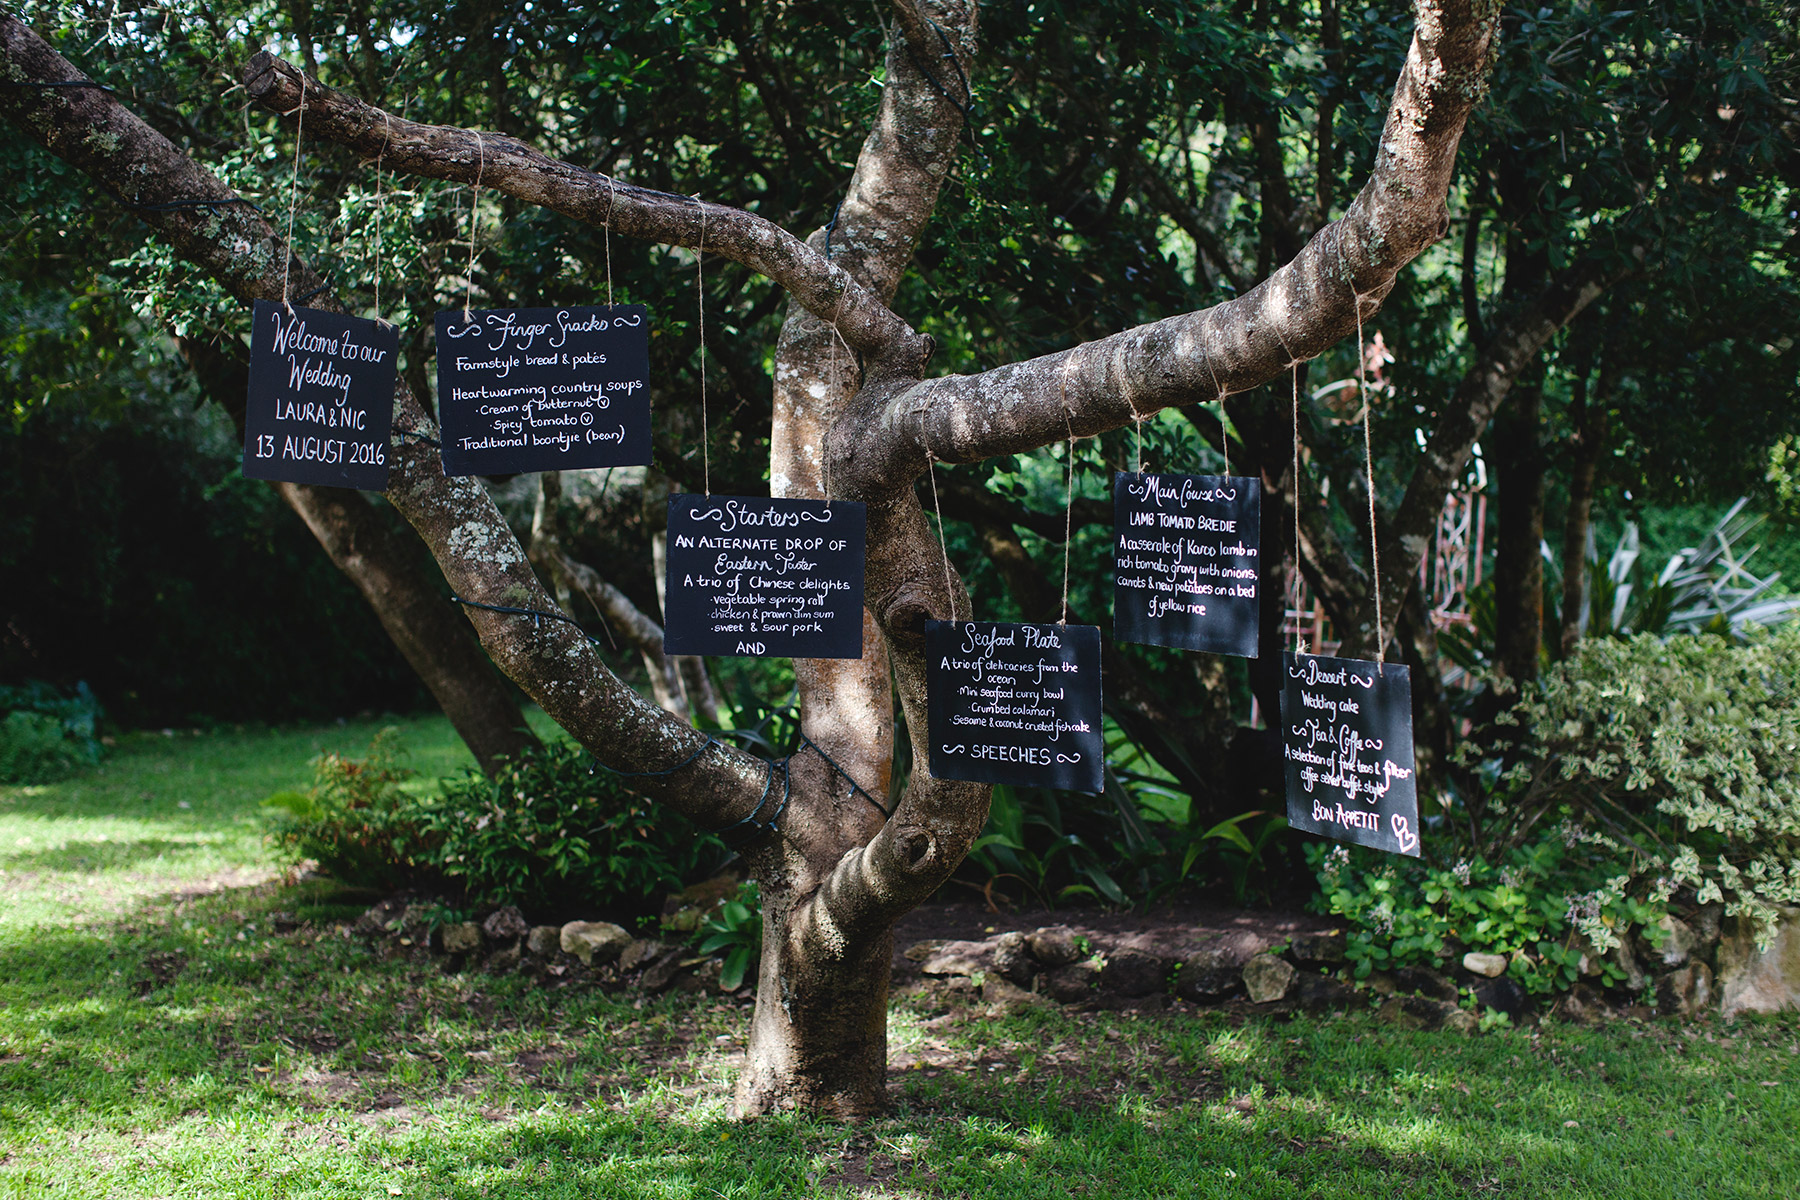 Welcome to our
Wedding
LAURA & NIC
13 AUGUST 2016
Finger Snacks
Farmstyle bread & patés
Heartwarming country soups
· Cream of butternut Ⓥ
· Spicy tomato Ⓥ
· Traditional boontjie (bean)
Starters
AN ALTERNATE DROP OF
Eastern Taster
A trio of Chinese delights
· vegetable spring roll
· chicken & prawn dim sum
· sweet & sour pork
AND
Seafood Plate
A trio of delicacies from the
ocean
· Mini seafood curry bowl
· Crumbed calamari
· Sesame & coconut crusted fishcake
SPEECHES
Main Course
LAMB TOMATO BREDIE
A casserole of Karoo lamb in
rich tomato gravy with onions,
carrots & new potatoes on a bed
of yellow rice
Dessert
Wedding cake
Tea & Coffee
A selection of fine teas & filter
coffee served buffet style
BON APPETIT